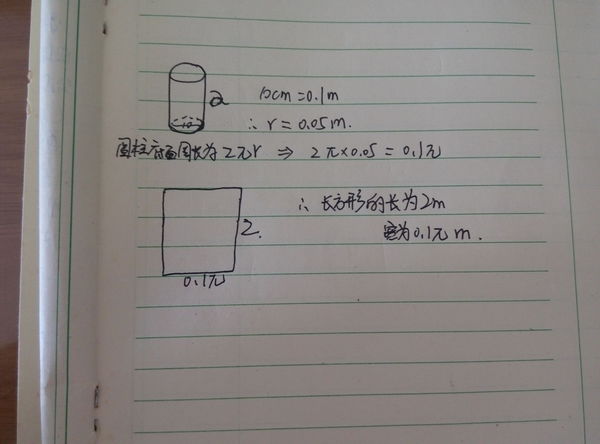 2
10
10cm=0.1m
∴ r=0.05m.
圆柱底面周长为2πr ⇒ 2π×0.05=0.1π
∴ 长方形的长为2m
宽为0.1π m.
2.
0.1π